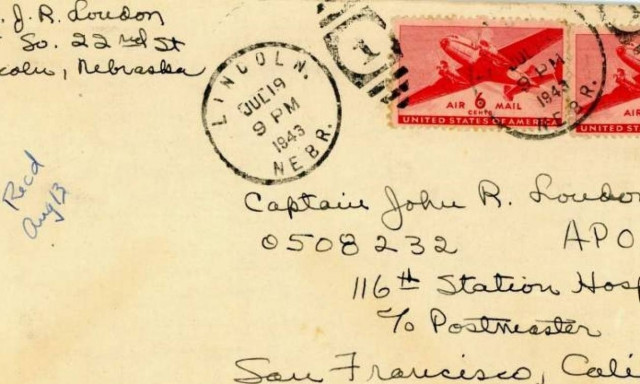 . J. R. Loudon
So. 22nd St
coln, Nebraska
LINCOLN.
JUL 19
9 PM
1943
NEBR.
1
6
CENTS
AIR MAIL
UNITED STATES OF AMERICA
AI
UNITED STA
JUL
9 PM
1943
NEBR.
Rec'd
Aug 13
Captain John R. Loudon
0508232 APO
116th Station Hosp
c/o Postmaster
San Francisco, Cali